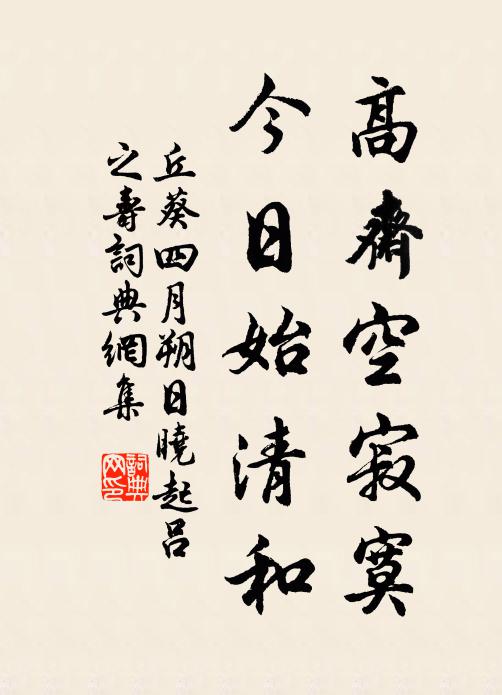 高齋空寂寞
今日始清和
丘葵四月朔日曉起呂
之壽詞典網集
詞典
网印